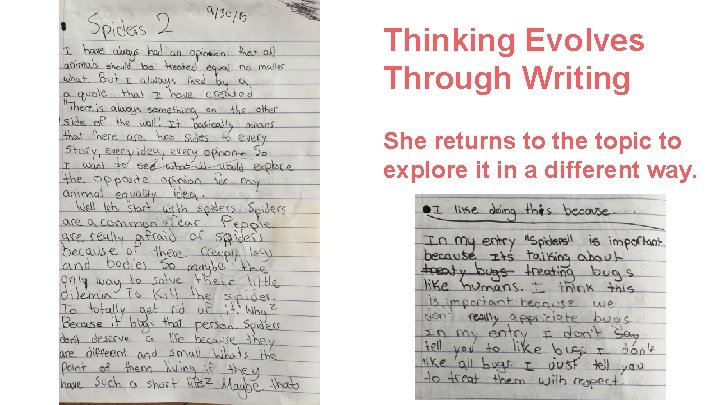 Spiders 2
9/30/15
I have always had an opinion that all
animals should be treated equal no matter
what. But I always lived by a
a quote that I have created
"There is always something on the other
side of the wall". It basically means
that there are two sides to every
story, every idea, every opinion. So
I want to see what it would explore
the opposite opinion for my
animal equality idea.
Well lets start with spiders. Spiders
are a common fear. People
are really afraid of spiders
because of there creepy legs
and bodies. So maybe the
only way to solve there little
dilemna. To kill the spides.
To totally get rid of it. Why?
Because it bugs that person. Spiders
don't deserve a life because they
are different and small. Whats the
point of them living if they
have such a short life? Maybe thats
Thinking Evolves
Through Writing
She returns to the topic to
explore it in a different way.
I like doing this because....
In my entry "Spiders" is important
because Its talking about
treaty bugs treating bugs
like humans. I think this
is important because we
don't really appriciate bugs
In my entry I don't say
tell you to like bugs I don't
like all bugs. I just tell you
to treat them with respect